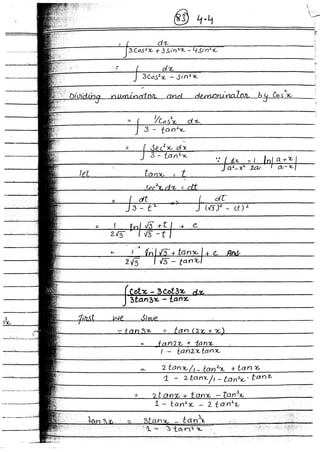 83 4.4
= ∫ dx / 3Cos²x + 3Sin²x - 4Sin²x
= ∫ dx / 3Cos²x - Sin²x
Dividing numinator and demoninator by Cos²x
= ∫ 1/Cos²x dx / 3 - tan²x
= ∫ Sec²x dx / 3 - tan²x ∵ ∫ dx / a²-x² = 1/2a ln | a+x / a-x |
let tanx = t
Sec²x dx = dt
= ∫ dt / 3 - t² => ∫ dt / (√3)² - (t)²
= 1/2√3 ln | √3 + t / √3 - t | + c
= 1/2√3 ln | √3 + tanx / √3 - tanx | + c Ans
∫ Cotx - 3Cot3x / 3tan3x - tanx dx
First we Slove
tan3x = tan(2x + x)
= tan2x + tanx / 1 - tan2x tanx
= 2tanx/1-tan²x + tanx / 1 - 2tanx/1-tan²x · tanx
= 2tanx + tanx - tan³x / 1 - tan²x - 2tan²x
tan3x = 3tanx - tan³x / 1 - 3tan²x